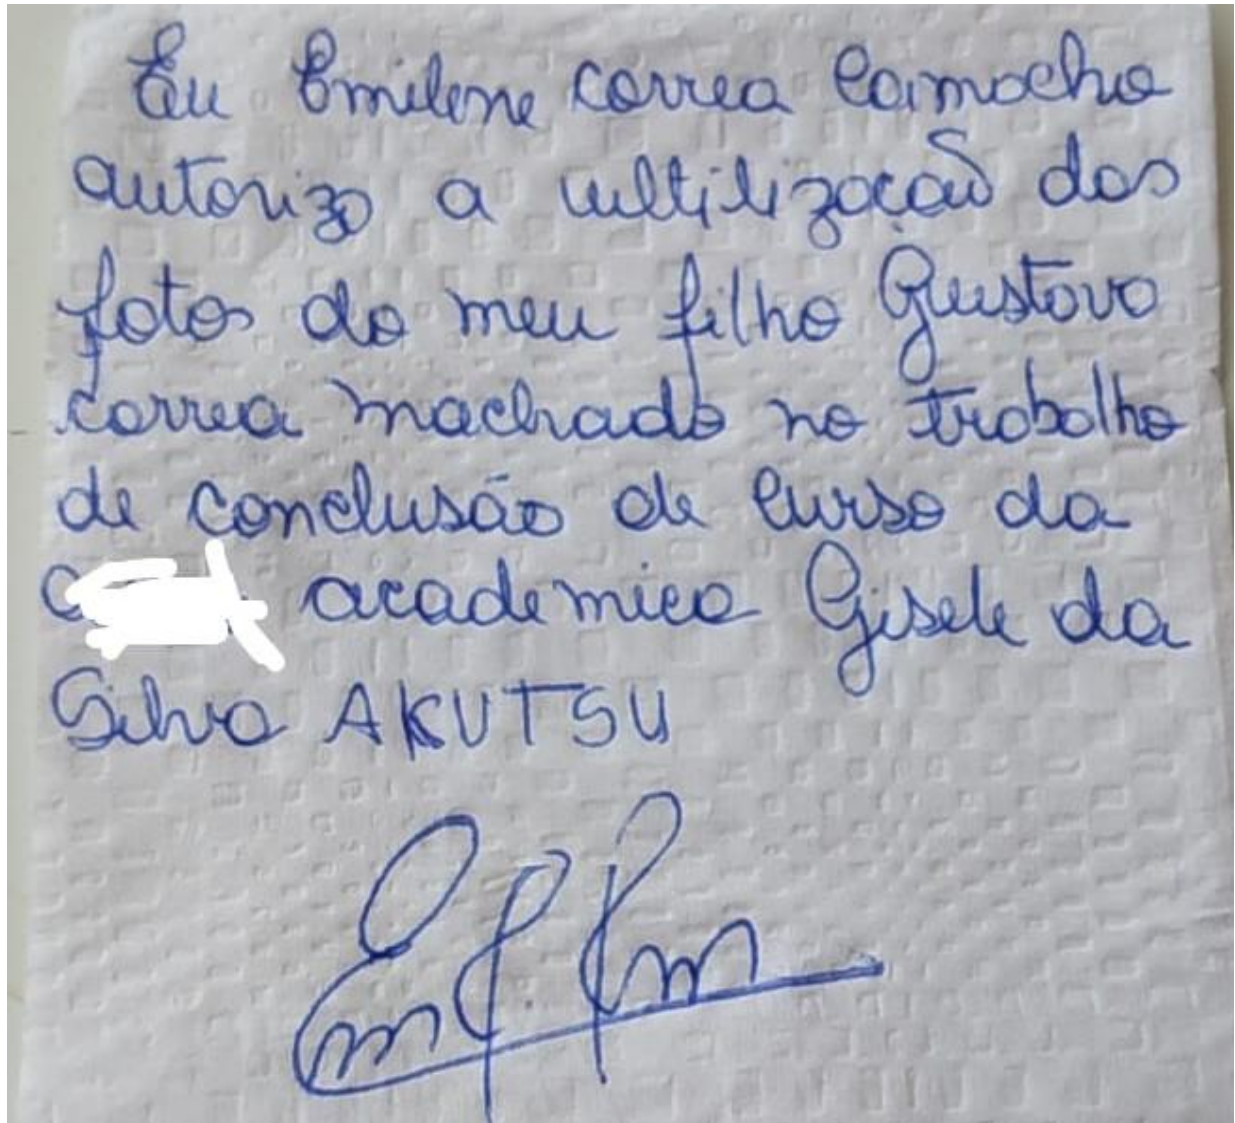 Eu Emilene correa Camacho
autorizo a ultilização das
fotos do meu filho Gustavo
correa machado no trabalho
de conclusão de curso da
academica Gisele da
Silva AKUTSU